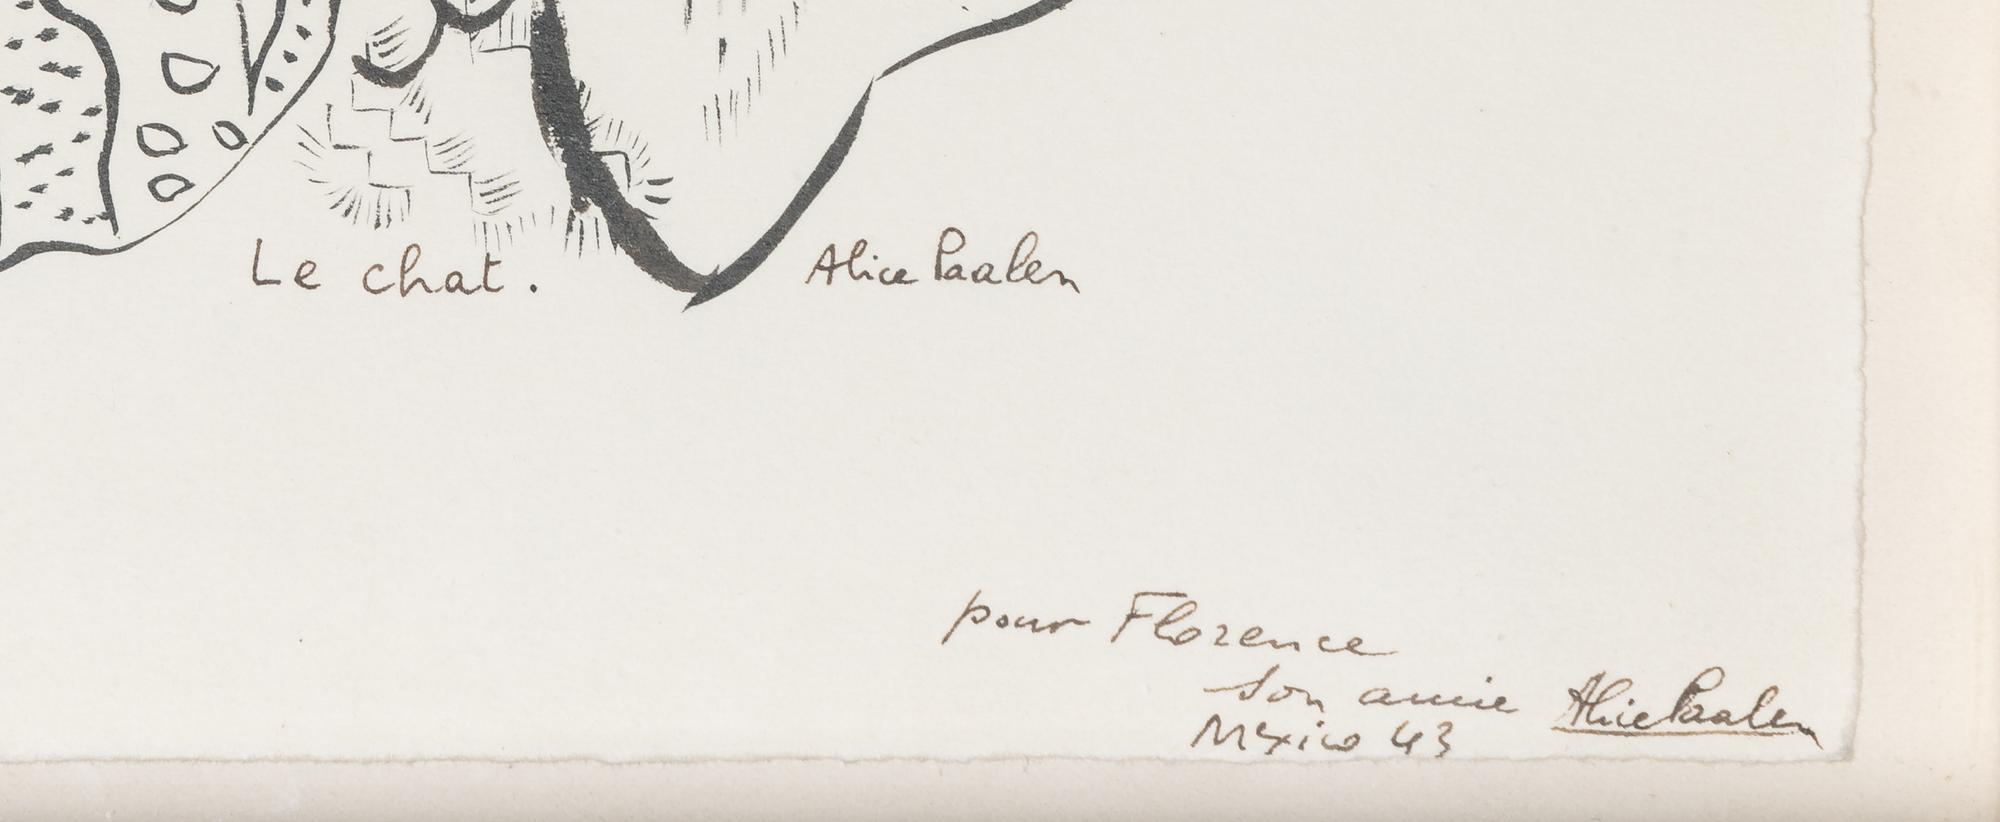 Le chat. Alice Paalen
pour Florence
son amie Alice Paalen
Mexico 43